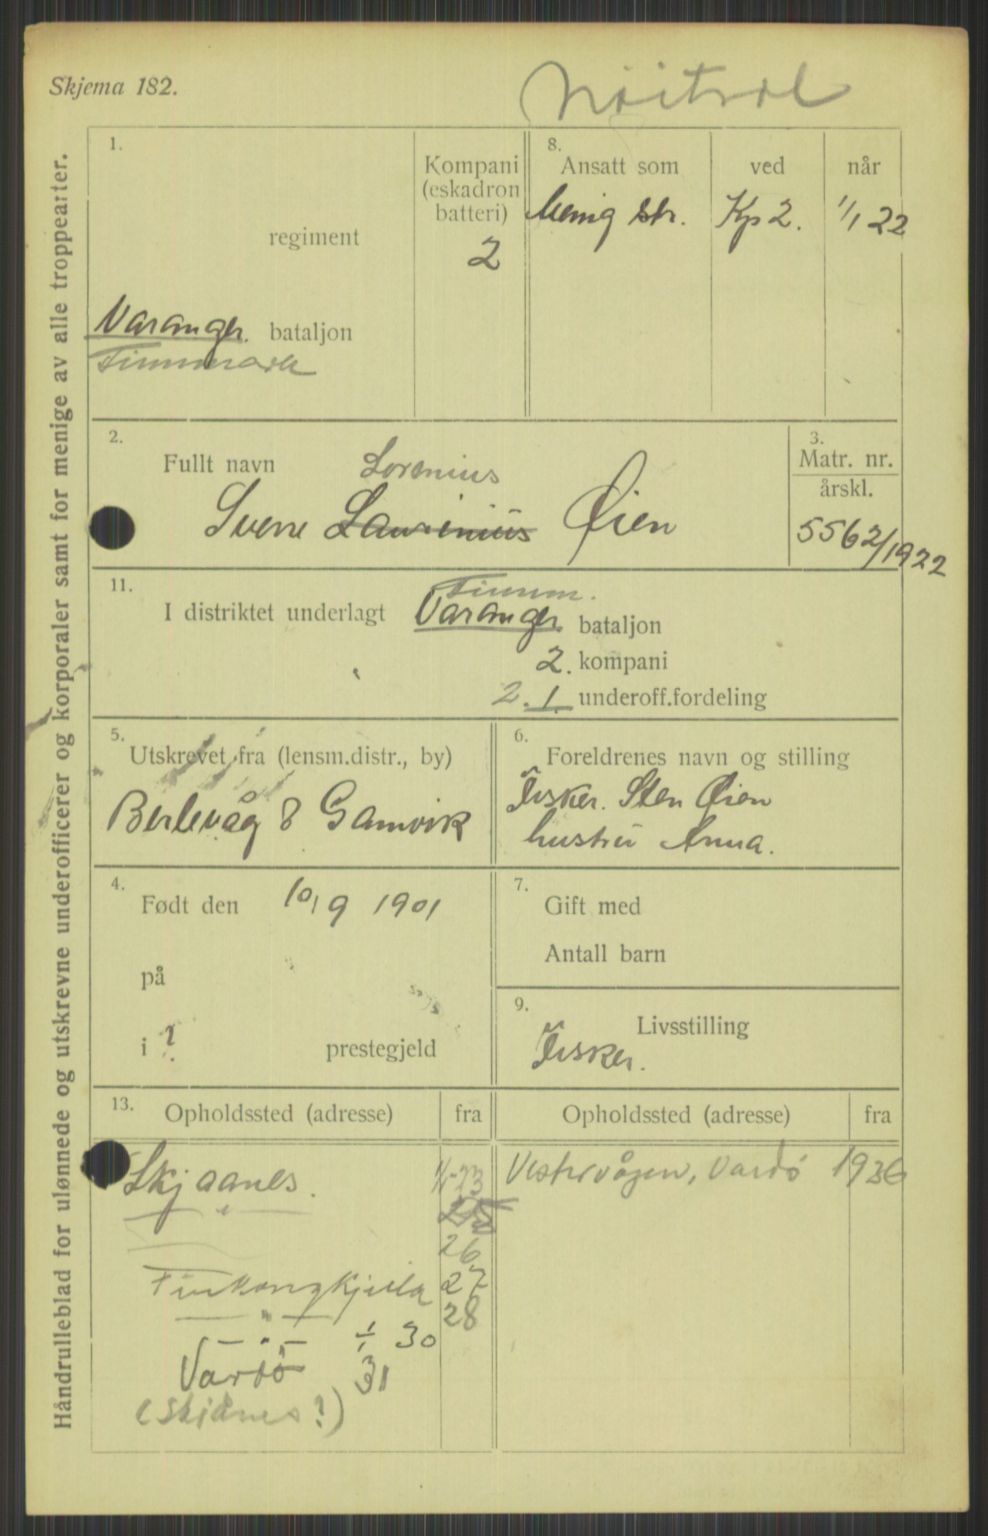 Skjema 182.
Nøitral
Håndrulleblad for ulønnede og utskrevne underofficerer og korporaler samt for menige av alle troppearter.
1.
regiment
Varanger. bataljon
Finnmark
Kompani
(eskadron
batteri)
2
8.
Ansatt som
Menig str.
ved
Kp 2.
når
1/1 22
2.
Fullt navn
Lorenius
Sverre Laurenius Øien
3.
Matr. nr.
årskl.
5562/1922
11.
Finnm.
I distriktet underlagt Varanger bataljon
2. kompani
2. 1. underoff.fordeling
5.
Utskrevet fra (lensm.distr., by)
Berlevåg & Gamvik
6.
Foreldrenes navn og stilling
Fisker. Sten Øien
hustru Anna.
4.
Født den 10/9 1901
på
i ? prestegjeld
7.
Gift med
Antall barn
9.
Livsstilling
Fisker.
13.
Opholdssted (adresse) fra
Skjaanes. 1/1-23
— " — 25
26
Finkongkjeila 27
— " — 28
— " — 1/1 30
Vardö 31
(Skjånes?)
Opholdssted (adresse) fra
Vestervågen, Vardø 1936